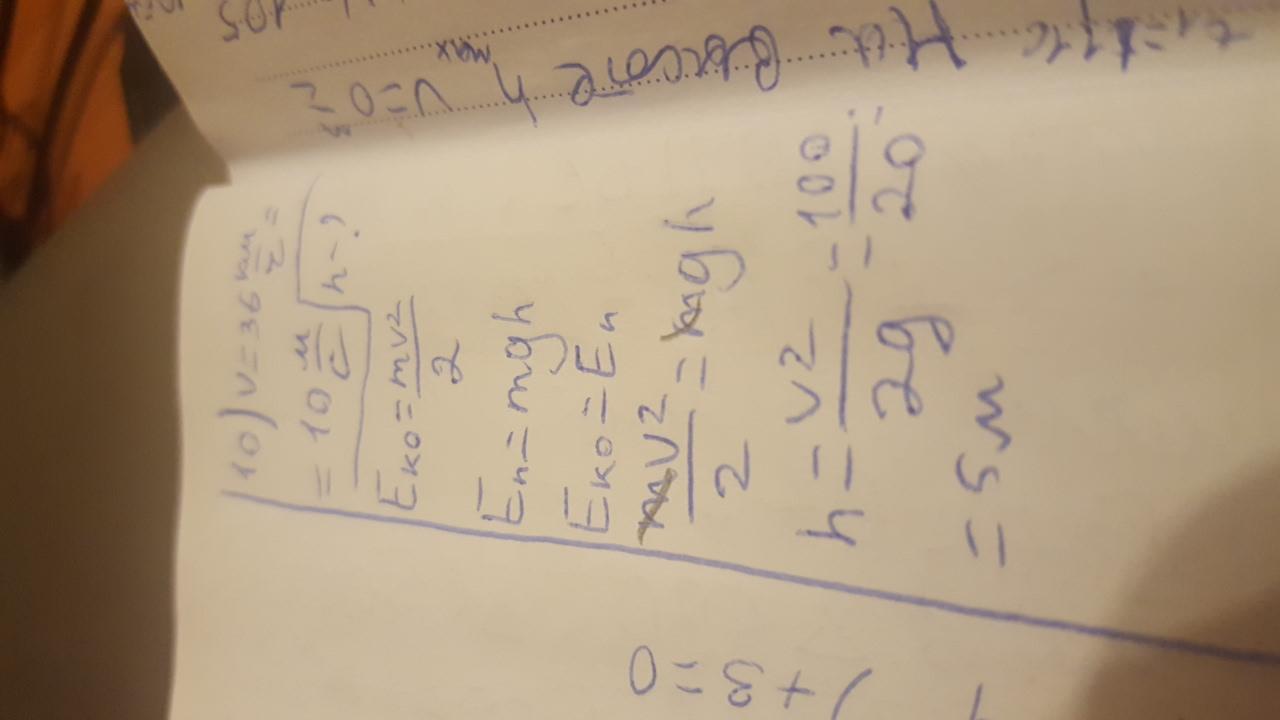 10) v=36 км/г =
= 10 м/с
h-?
Eко = mv²/2
Eп = mgh
Eко = Eп
mv²/2 = mgh
h = v²/2g = 100/20 =
= 5 м
На высоте h max v=0 м/с
105
) + 3 = 0